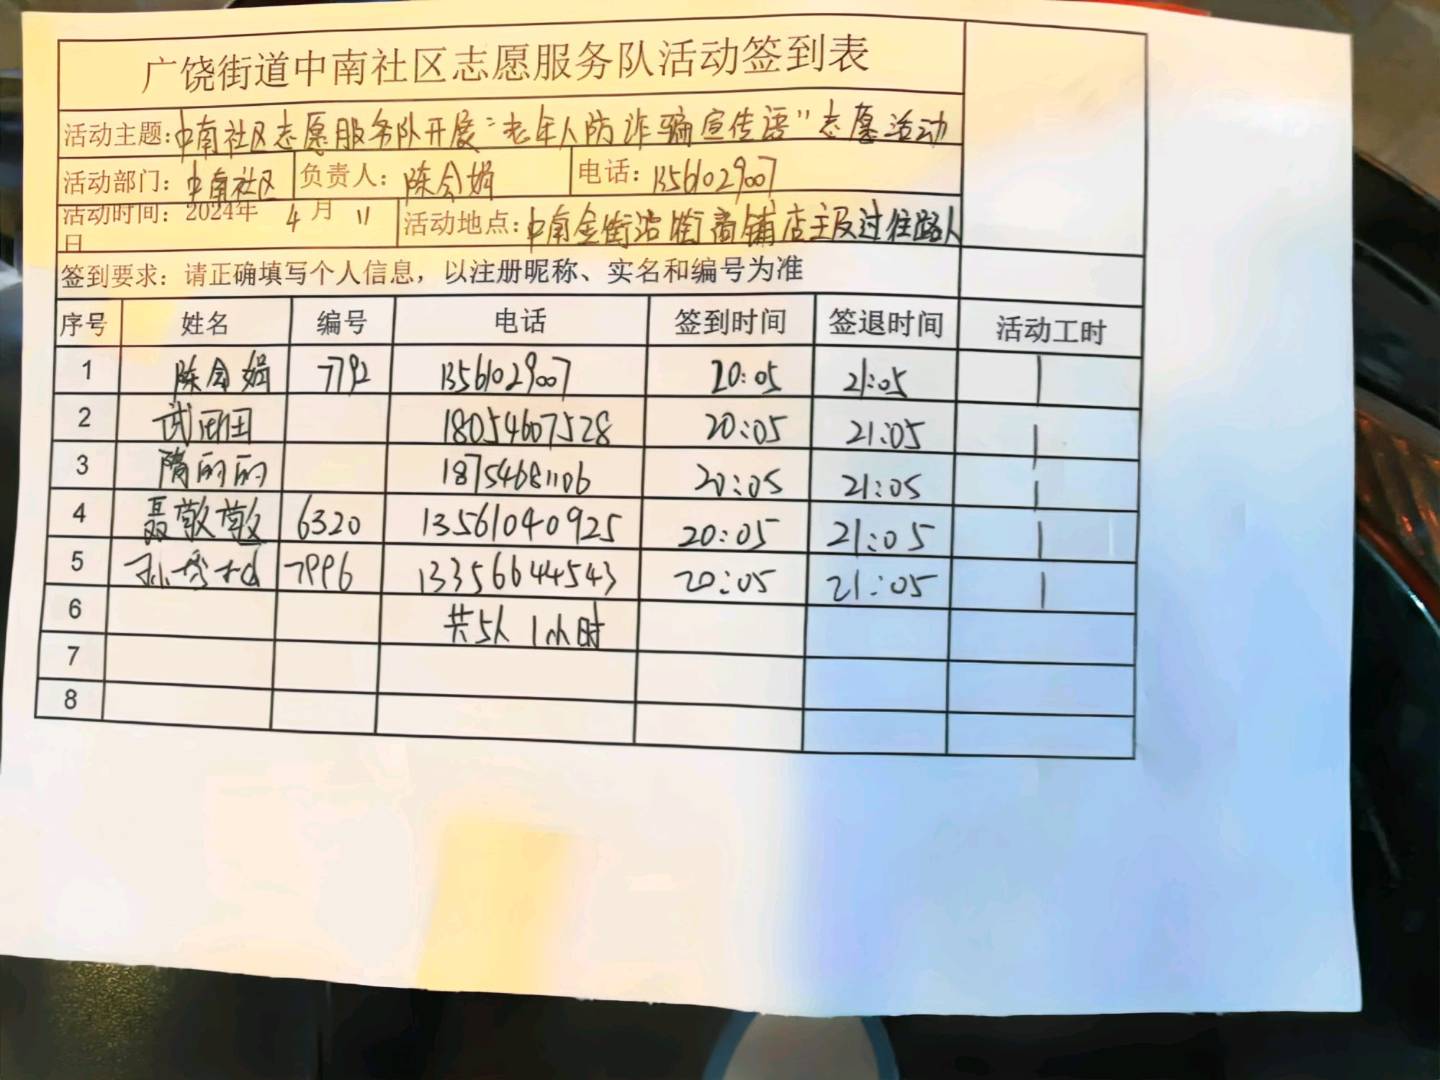 广饶街道中南社区志愿服务队活动签到表
活动主题:中南社区志愿服务队开展“老年人防诈骗宣传语”志愿活动
活动部门:中南社区 负责人:陈会娟 电话:13561029007
活动时间:2024年 4 月 11
日
活动地点:中南金街沿街商铺店主及过往路人
签到要求:请正确填写个人信息,以注册昵称、实名和编号为准
序号 姓名 编号 电话 签到时间 签退时间 活动工时
1 陈会娟 7792 13561029007 20:05 21:05 1
2 武 18054607528 20:05 21:05 1
3 隋的的 18754681106 20:05 21:05 1
4 聂敬敬 6320 13561040925 20:05 21:05 1
5 孙秀 7996 13356644543 20:05 21:05 1
6 共5人 1小时
7
8